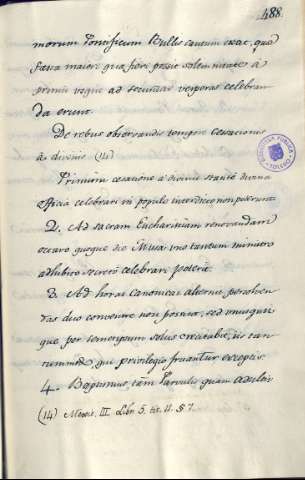 488.
morum Pontificum Bullis cautum exat, qua
festa maiori qua fieri posset solemnitate à
primis usque ad secundas vesperas celebran
da erunt.
De rebus observandis tempore Cessationis
à divinis (14)
Primum cessatione a divinis stante divina
officia celebrari in populo interdicto non poterunt
2. Ad sacram Eucharistiam renovandam
octavo quoque die Missa uno tantum ministro
adhibito secreto celebrari poterit.
3. Ad horas canonicas alternis persolven
das duo convenire non possint, sed unusquis
que per semetipsum solus recitabit, iis tan
tummodo qui privilegio fruantur exceptis
4. Baptismus, tàm Parvulis quam adultis
(14) Mexic. III. Libr. 5. tit. 11. § 7.
BIBLIOTECA PUBLICA
TOLEDO